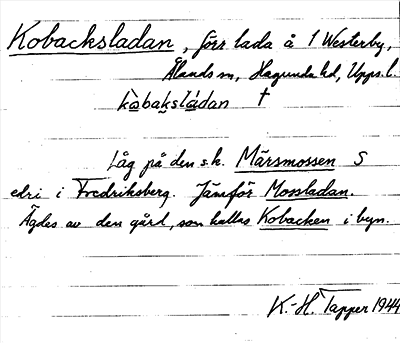 Kobacksladan, förr lada å 1 Westerby,
Ålands sn, Hagunda hd, Upps. l.
kåbakslådan †
Låg på den s.k. Märsmossen S
edri i Fredriksberg. Jämför Mossladan.
Ägdes av den gård, som kallas Kobacken i byn.
K.-H. Tapper 1944